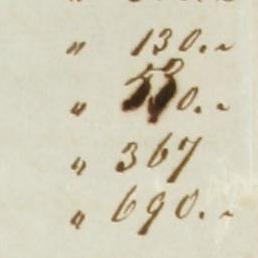 " 130.~
" 0.~
" 367
" 690.~